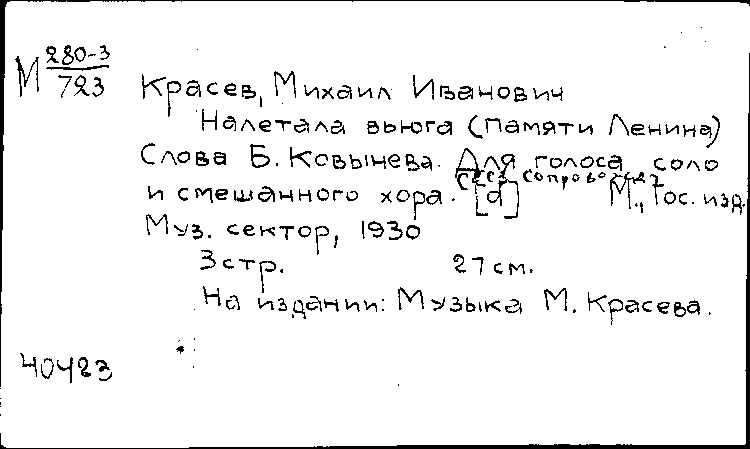 М 280-3
723
Красев, Михаил Иванович
Налетала вьюга (памяти Ленина)
Слова Б. Ковынева. Для голоса соло
(без сопровожд.)
и смешанного хора. [d] М., Гос. изд.
Муз. сектор, 1930
3 стр. 27 см.
На издании: Музыка М. Красева.
40423